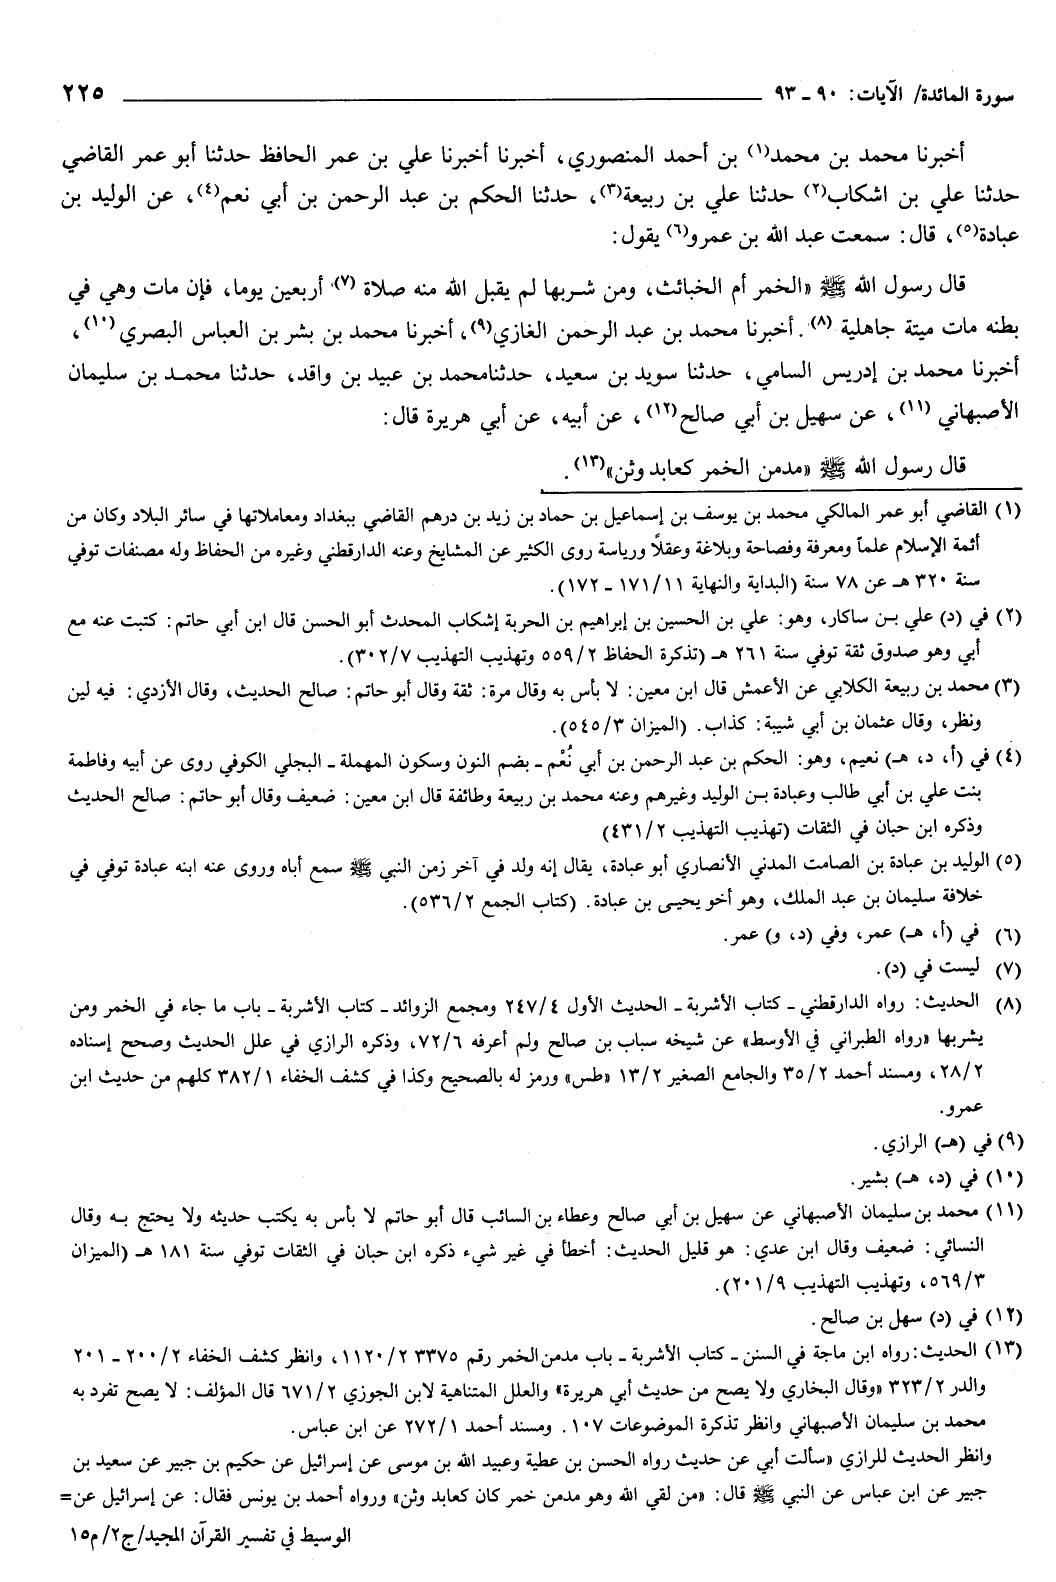 سورة المائدة/ الآيات: ٩٠ ـ ٩٣ ٢٢٥
أخبرنا محمد بن محمد(١) بن أحمد المنصوري، أخبرنا علي بن عمر الحافظ حدثنا أبو عمر القاضي
حدثنا علي بن اشكاب(٢) حدثنا علي بن ربيعة(٣)، حدثنا الحكم بن عبد الرحمن بن أبي نعم(٤)، عن الوليد بن
عبادة(٥)، قال: سمعت عبد الله بن عمرو(٦) يقول:
قال رسول الله ﷺ «الخمر أم الخبائث، ومن شربها لم يقبل الله منه صلاة (٧) أربعين يوما، فإن مات وهي في
بطنه مات ميتة جاهلية (٨). أخبرنا محمد بن عبد الرحمن الغازي(٩)، أخبرنا محمد بن بشر بن العباس البصري (١٠)،
أخبرنا محمد بن إدريس السامي، حدثنا سويد بن سعيد، حدثنامحمد بن عبيد بن واقد، حدثنا محمد بن سليمان
الأصبهاني (١١)، عن سهيل بن أبي صالح(١٢)، عن أبيه، عن أبي هريرة قال:
قال رسول الله ﷺ «مدمن الخمر كعابد وثن»(١٣).
(١) القاضي أبو عمر المالكي محمد بن يوسف بن إسماعيل بن حماد بن زيد بن درهم القاضي ببغداد ومعاملاتها في سائر البلاد وكان من
أئمة الإسلام علماً ومعرفة وفصاحة وبلاغة وعقلًا ورياسة روى الكثير عن المشايخ وعنه الدارقطني وغيره من الحفاظ وله مصنفات توفي
سنة ٣٢٠ هـ عن ٧٨ سنة (البداية والنهاية ١٧١/١١ ـ ١٧٢).
(٢) في (د) علي بن ساكار، وهو: علي بن الحسين بن إبراهيم بن الحربة إشكاب المحدث أبو الحسن قال ابن أبي حاتم: كتبت عنه مع
أبي وهو صدوق ثقة توفي سنة ٢٦١ هـ (تذكرة الحفاظ ٥٥٩/٢ وتهذيب التهذيب ٣٠٢/٧).
(٣) محمد بن ربيعة الكلابي عن الأعمش قال ابن معين: لا بأس به وقال مرة: ثقة وقال أبو حاتم: صالح الحديث، وقال الأزدي: فيه لين
ونظر، وقال عثمان بن أبي شيبة: كذاب. (الميزان ٥٤٥/٣).
(٤) في (أ، د، هـ) نعيم، وهو: الحكم بن عبد الرحمن بن أبي نُعْم ـ بضم النون وسكون المهملة ـ البجلي الكوفي روى عن أبيه وفاطمة
بنت علي بن أبي طالب وعبادة بن الوليد وغيرهم وعنه محمد بن ربيعة وطائفة قال ابن معين: ضعيف وقال أبو حاتم: صالح الحديث
وذكره ابن حبان في الثقات (تهذيب التهذيب ٤٣١/٢)
(٥) الوليد بن عبادة بن الصامت المدني الأنصاري أبو عبادة، يقال إنه ولد في آخر زمن النبي ﷺ سمع أباه وروى عنه ابنه عبادة توفي في
خلافة سليمان بن عبد الملك، وهو أخو يحيى بن عبادة. (كتاب الجمع ٥٣٦/٢).
(٦) في (أ، هـ) عمر، وفي (د، و) عمر.
(٧) ليست في (د).
(٨) الحديث: رواه الدارقطني ـ كتاب الأشربة ـ الحديث الأول ٢٤٧/٤ ومجمع الزوائد ـ كتاب الأشربة ـ باب ما جاء في الخمر ومن
يشربها «رواه الطبراني في الأوسط» عن شيخه سباب بن صالح ولم أعرفه ٧٢/٦، وذكره الرازي في علل الحديث وصحح إسناده
٢٨/٢، ومسند أحمد ٣٥/٢ والجامع الصغير ١٣/٢ «طس» ورمز له بالصحيح وكذا في كشف الخفاء ٣٨٢/١ كلهم من حديث ابن
عمرو.
(٩) في (هـ) الرازي.
(١٠) في (د، هـ) بشير.
(١١) محمد بن سليمان الأصبهاني عن سهيل بن أبي صالح وعطاء بن السائب قال أبو حاتم لا بأس به يكتب حديثه ولا يحتج به وقال
النسائي: ضعيف وقال ابن عدي: هو قليل الحديث: أخطأ في غير شيء ذكره ابن حبان في الثقات توفي سنة ١٨١ هـ (الميزان
٥٦٩/٣، وتهذيب التهذيب ٢٠١/٩).
(١٢) في (د) سهل بن صالح.
(١٣) الحديث: رواه ابن ماجة في السنن ـ كتاب الأشربة ـ باب مدمن الخمر رقم ٣٣٧٥ ١١٢٠/٢، وانظر كشف الخفاء ٢٠٠/٢ ـ ٢٠١
والدر ٣٢٣/٢ «وقال البخاري ولا يصح من حديث أبي هريرة» والعلل المتناهية لابن الجوزي ٦٧١/٢ قال المؤلف: لا يصح تفرد به
محمد بن سليمان الأصبهاني وانظر تذكرة الموضوعات ١٠٧. ومسند أحمد ٢٧٢/١ عن ابن عباس.
وانظر الحديث للرازي «سألت أبي عن حديث رواه الحسن بن عطية وعبيد الله بن موسى عن إسرائيل عن حكيم بن جبير عن سعيد بن
جبير عن ابن عباس عن النبي ﷺ قال: «من لقي الله وهو مدمن خمر كان كعابد وثن» ورواه أحمد بن يونس فقال: عن إسرائيل عن=
الوسيط في تفسير القرآن المجيد/ج٢/م١٥